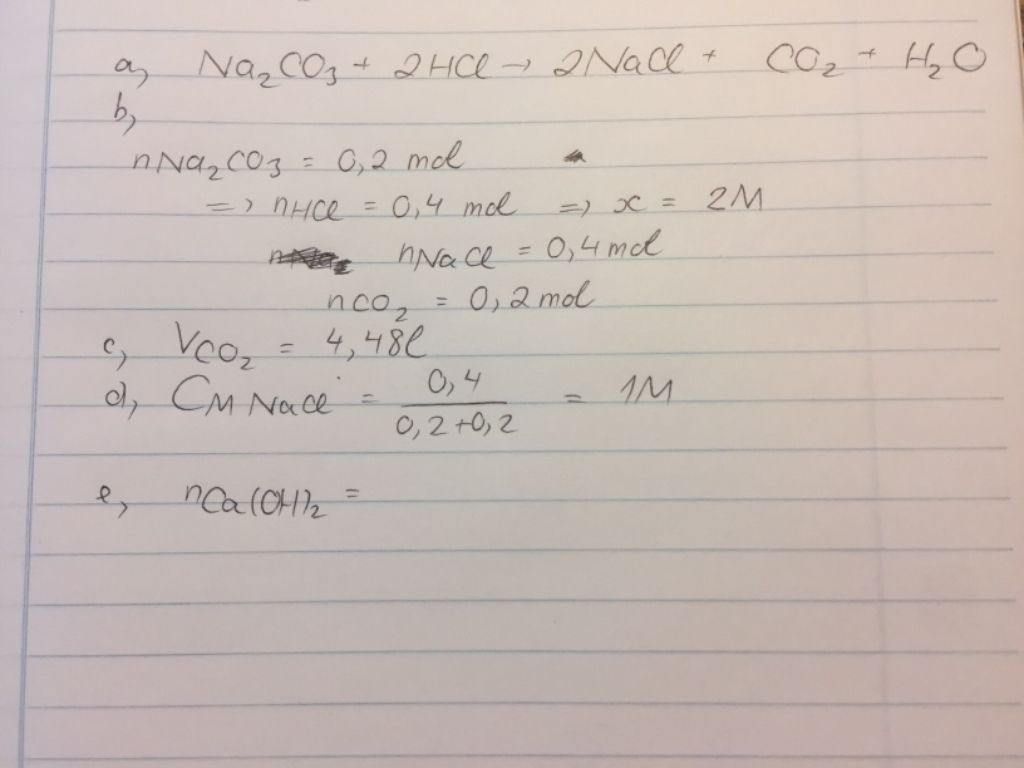 a, Na₂CO₃ + 2HCl → 2NaCl + CO₂ + H₂O
b,
nNa₂CO₃ = 0,2 mol
=> nHCl = 0,4 mol => x = 2M
nNaCl = 0,4 mol
nCO₂ = 0,2 mol
c, VCO₂ = 4,48l
d, CM NaCl = 0,4 / 0,2+0,2 = 1M
e, nCa(OH)₂ =